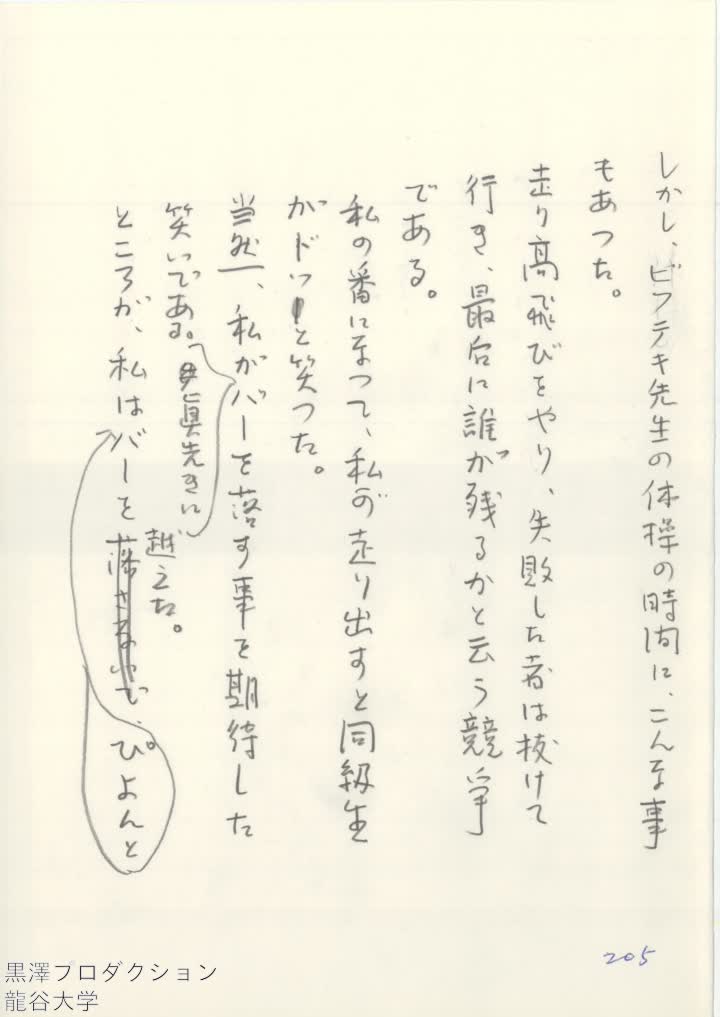 しかし、ビフテキ先生の体操の時間に、こんな事
もあつた。
走り高飛びをやり、失敗した者は抜けて
行き、最后に誰が残るかと云う競争
である。
私の番になつて、私が走り出すと同級生
がドッと笑つた。
当然、私がバーを落す事を期待した
笑いである。
眞先きに
ところが、私はバーを落さないで、ぴよんと
越えた。
205
黒澤プロダクション
龍谷大学